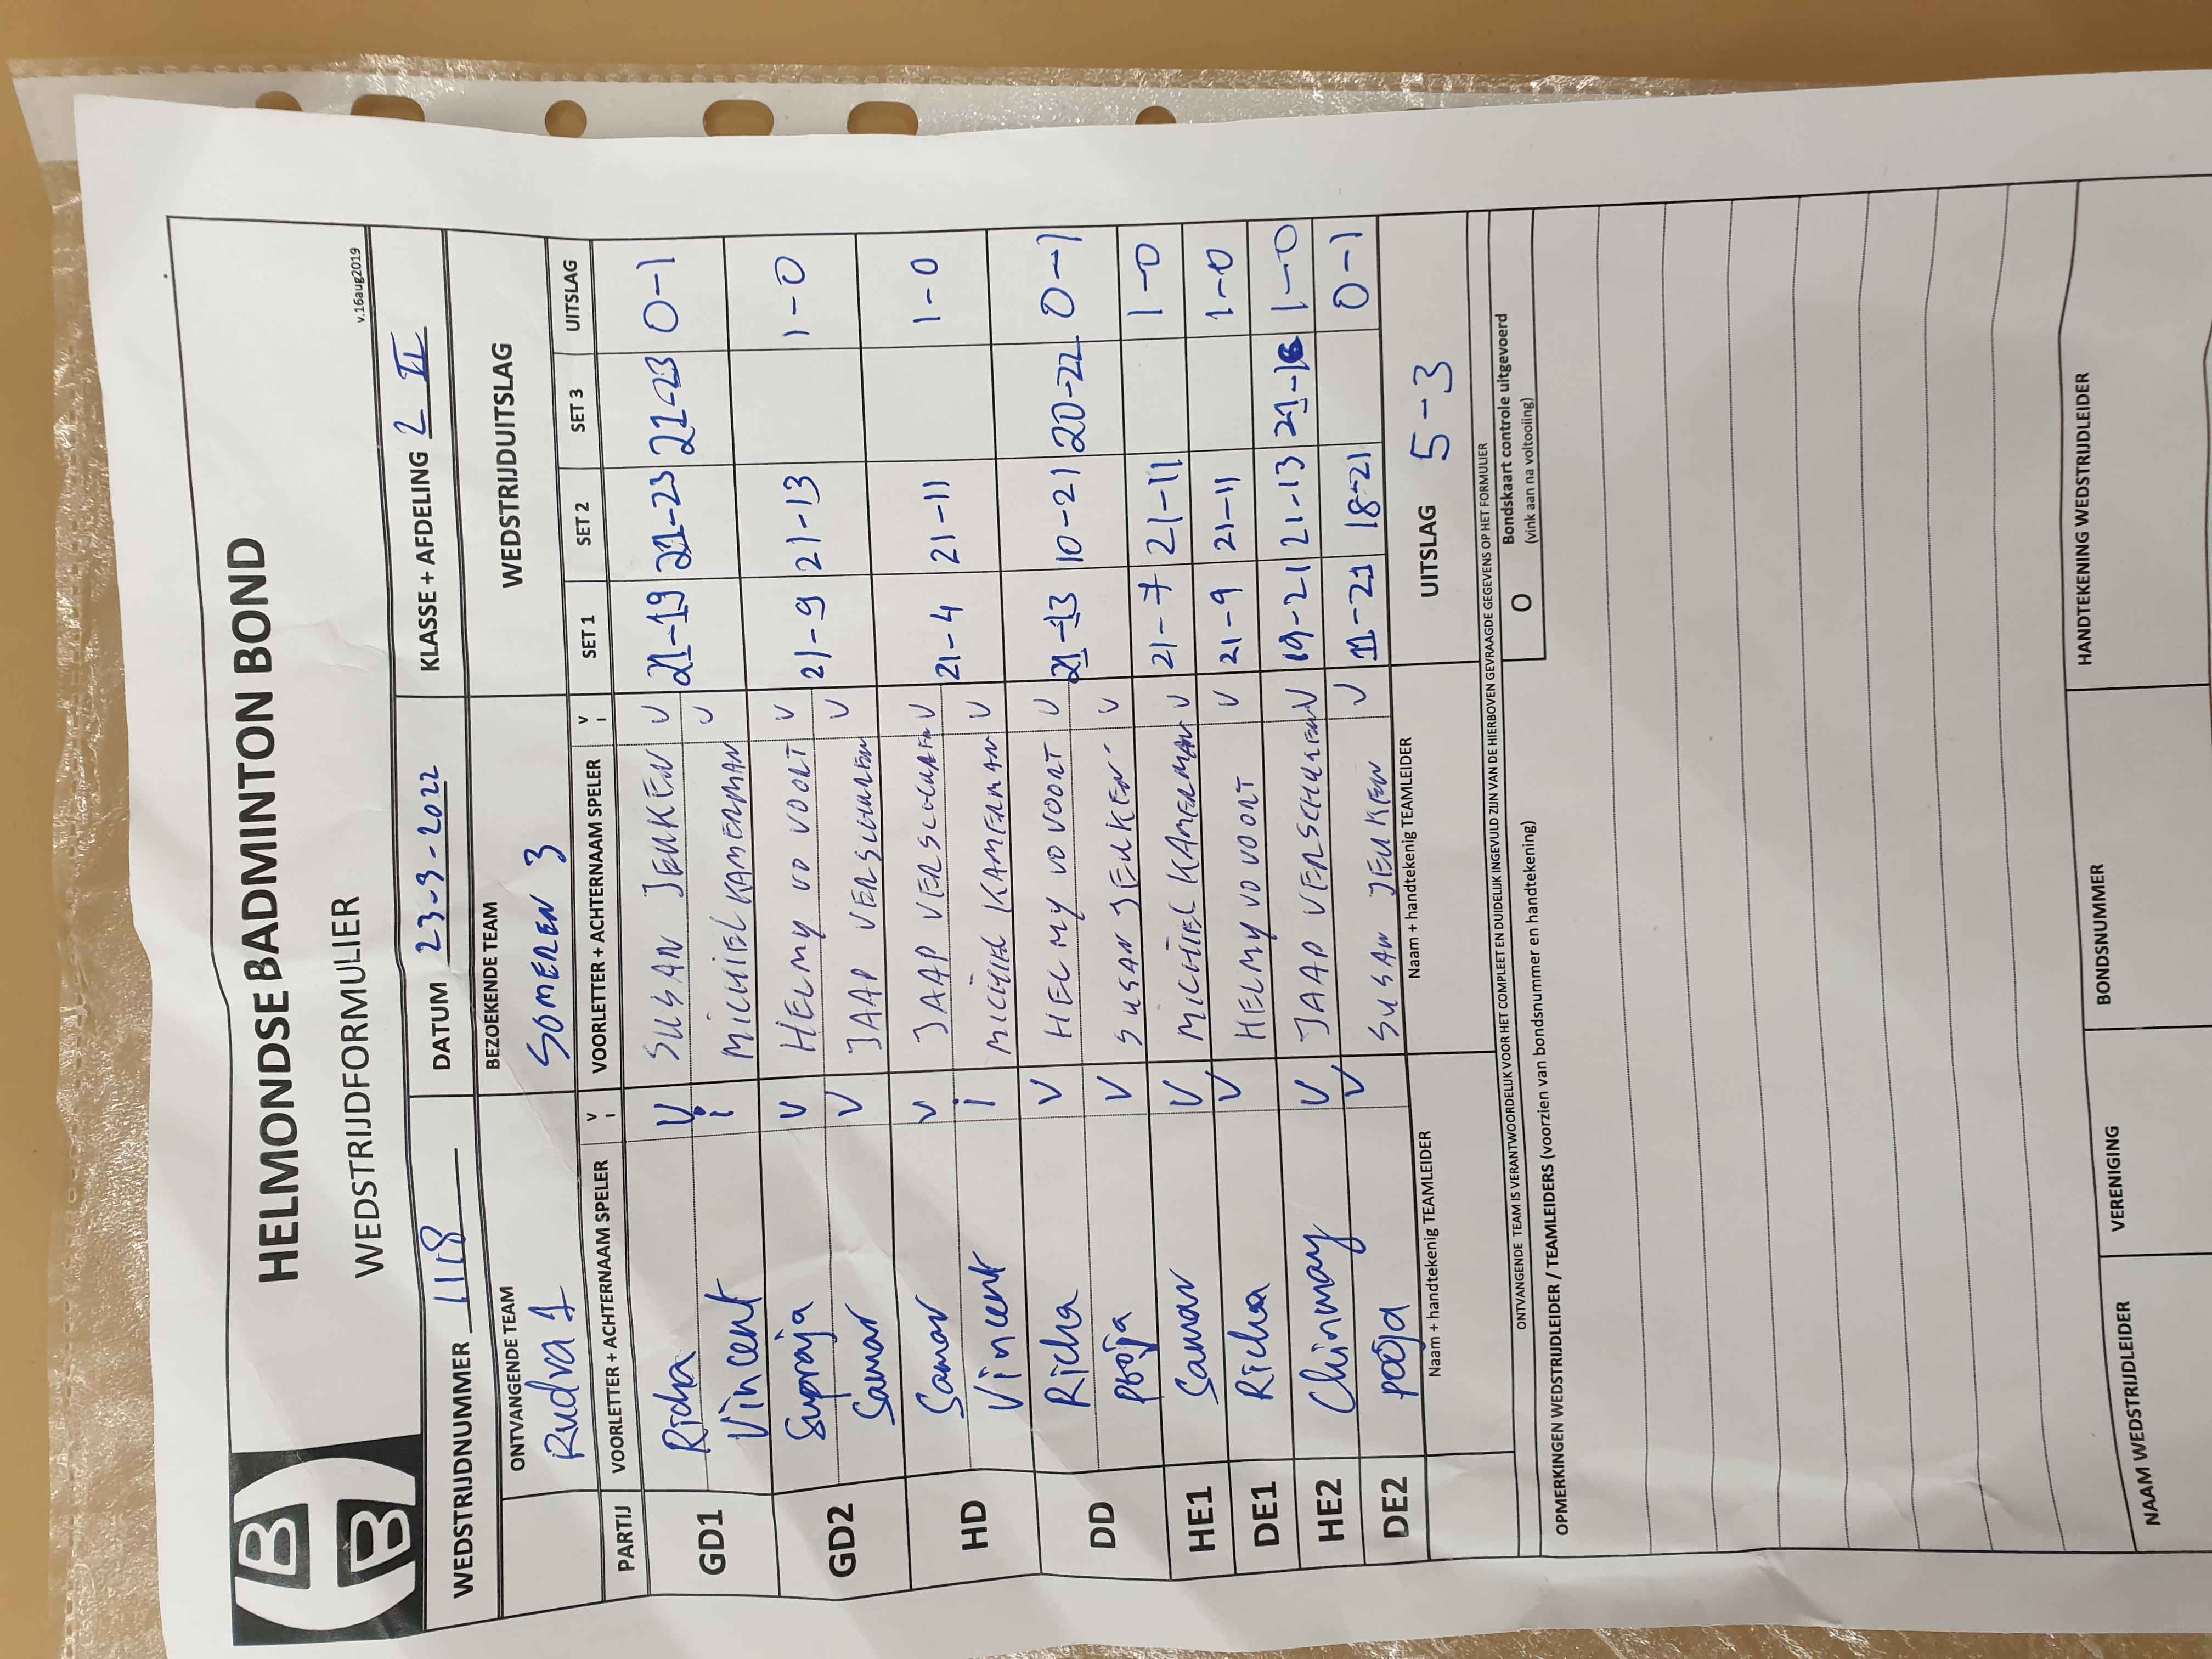 HB
B
HELMONDSE BADMINTON BOND
WEDSTRIJDFORMULIER
v.16aug2019
WEDSTRIJDNUMMER 1118 DATUM 23-03-2022 KLASSE + AFDELING 2 II
ONTVANGENDE TEAM BEZOEKENDE TEAM WEDSTRIJDUITSLAG
Rudra 1 SOMEREN 3
PARTIJ VOORLETTER + ACHTERNAAM SPELER V I VOORLETTER + ACHTERNAAM SPELER V I SET 1 SET 2 SET 3 UITSLAG
GD1 Richa V SUSAN JEUKEN V 21-19 21-23 21-23 0-1
Vincent i MICHIEL KAMERMAN V
GD2 Supraja V HELMY VD VOORT V 21-9 21-13 1-0
Samar V JAAP VERSCHUREN V
HD Samar V JAAP VERSCHUREN V 21-4 21-11 1-0
Vincent i MICHIEL KAMERMAN V
DD Richa V HELMY VD VOORT V 21-13 10-21 20-22 0-1
Pooja V SUSAN JEUKEN V
HE1 Samar V MICHIEL KAMERMAN V 21-7 21-11 1-0
DE1 Richa V HELMY VD VOORT V 21-9 21-11 1-0
HE2 Chinmay V JAAP VERSCHUREN V 19-21 21-13 21-16 1-0
DE2 Pooja V SUSAN JEUKEN V 11-21 18-21 0-1
Naam + handtekenig TEAMLEIDER Naam + handtekenig TEAMLEIDER UITSLAG 5-3
ONTVANGENDE TEAM IS VERANTWOORDELIJK VOOR HET COMPLEET EN DUIDELIJK INGEVULD ZIJN VAN DE HIERBOVEN GEVRAAGDE GEGEVENS OP HET FORMULIER
OPMERKINGEN WEDSTRIJDLEIDER / TEAMLEIDERS (voorzien van bondsnummer en handtekening)
O Bondskaart controle uitgevoerd
(vink aan na voltooiing)
NAAM WEDSTRIJDLEIDER VERENIGING BONDSNUMMER HANDTEKENING WEDSTRIJDLEIDER